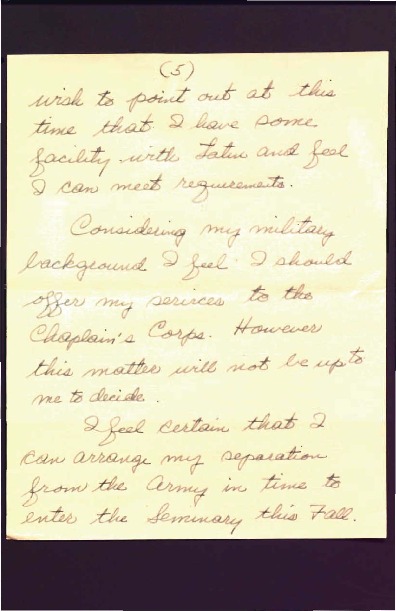 (5)
wish to point out at this
time that I have some
facility with Latin and feel
I can meet requirements.
Considering my military
background I feel I should
offer my services to the
Chaplain's Corps. However
this matter will not be up to
me to decide.
I feel certain that I
can arrange my separation
from the Army in time to
enter the Seminary this Fall.